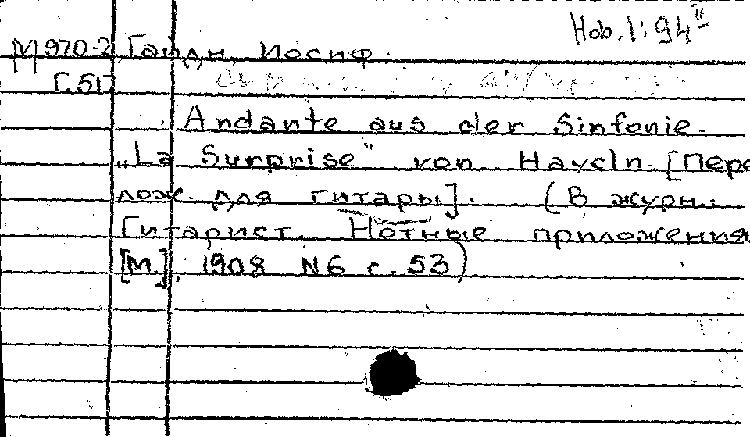 Нов. 1:94 II
М 970-2 Гайдн, Иосиф.
Г.51
Andante aus der Sinfonie
„La Surprise" von Haydn. [Пере
лож. для гитары]. (В журн.:
Гитарист. Нотные приложения
[М.], 1908 N6 с. 53)